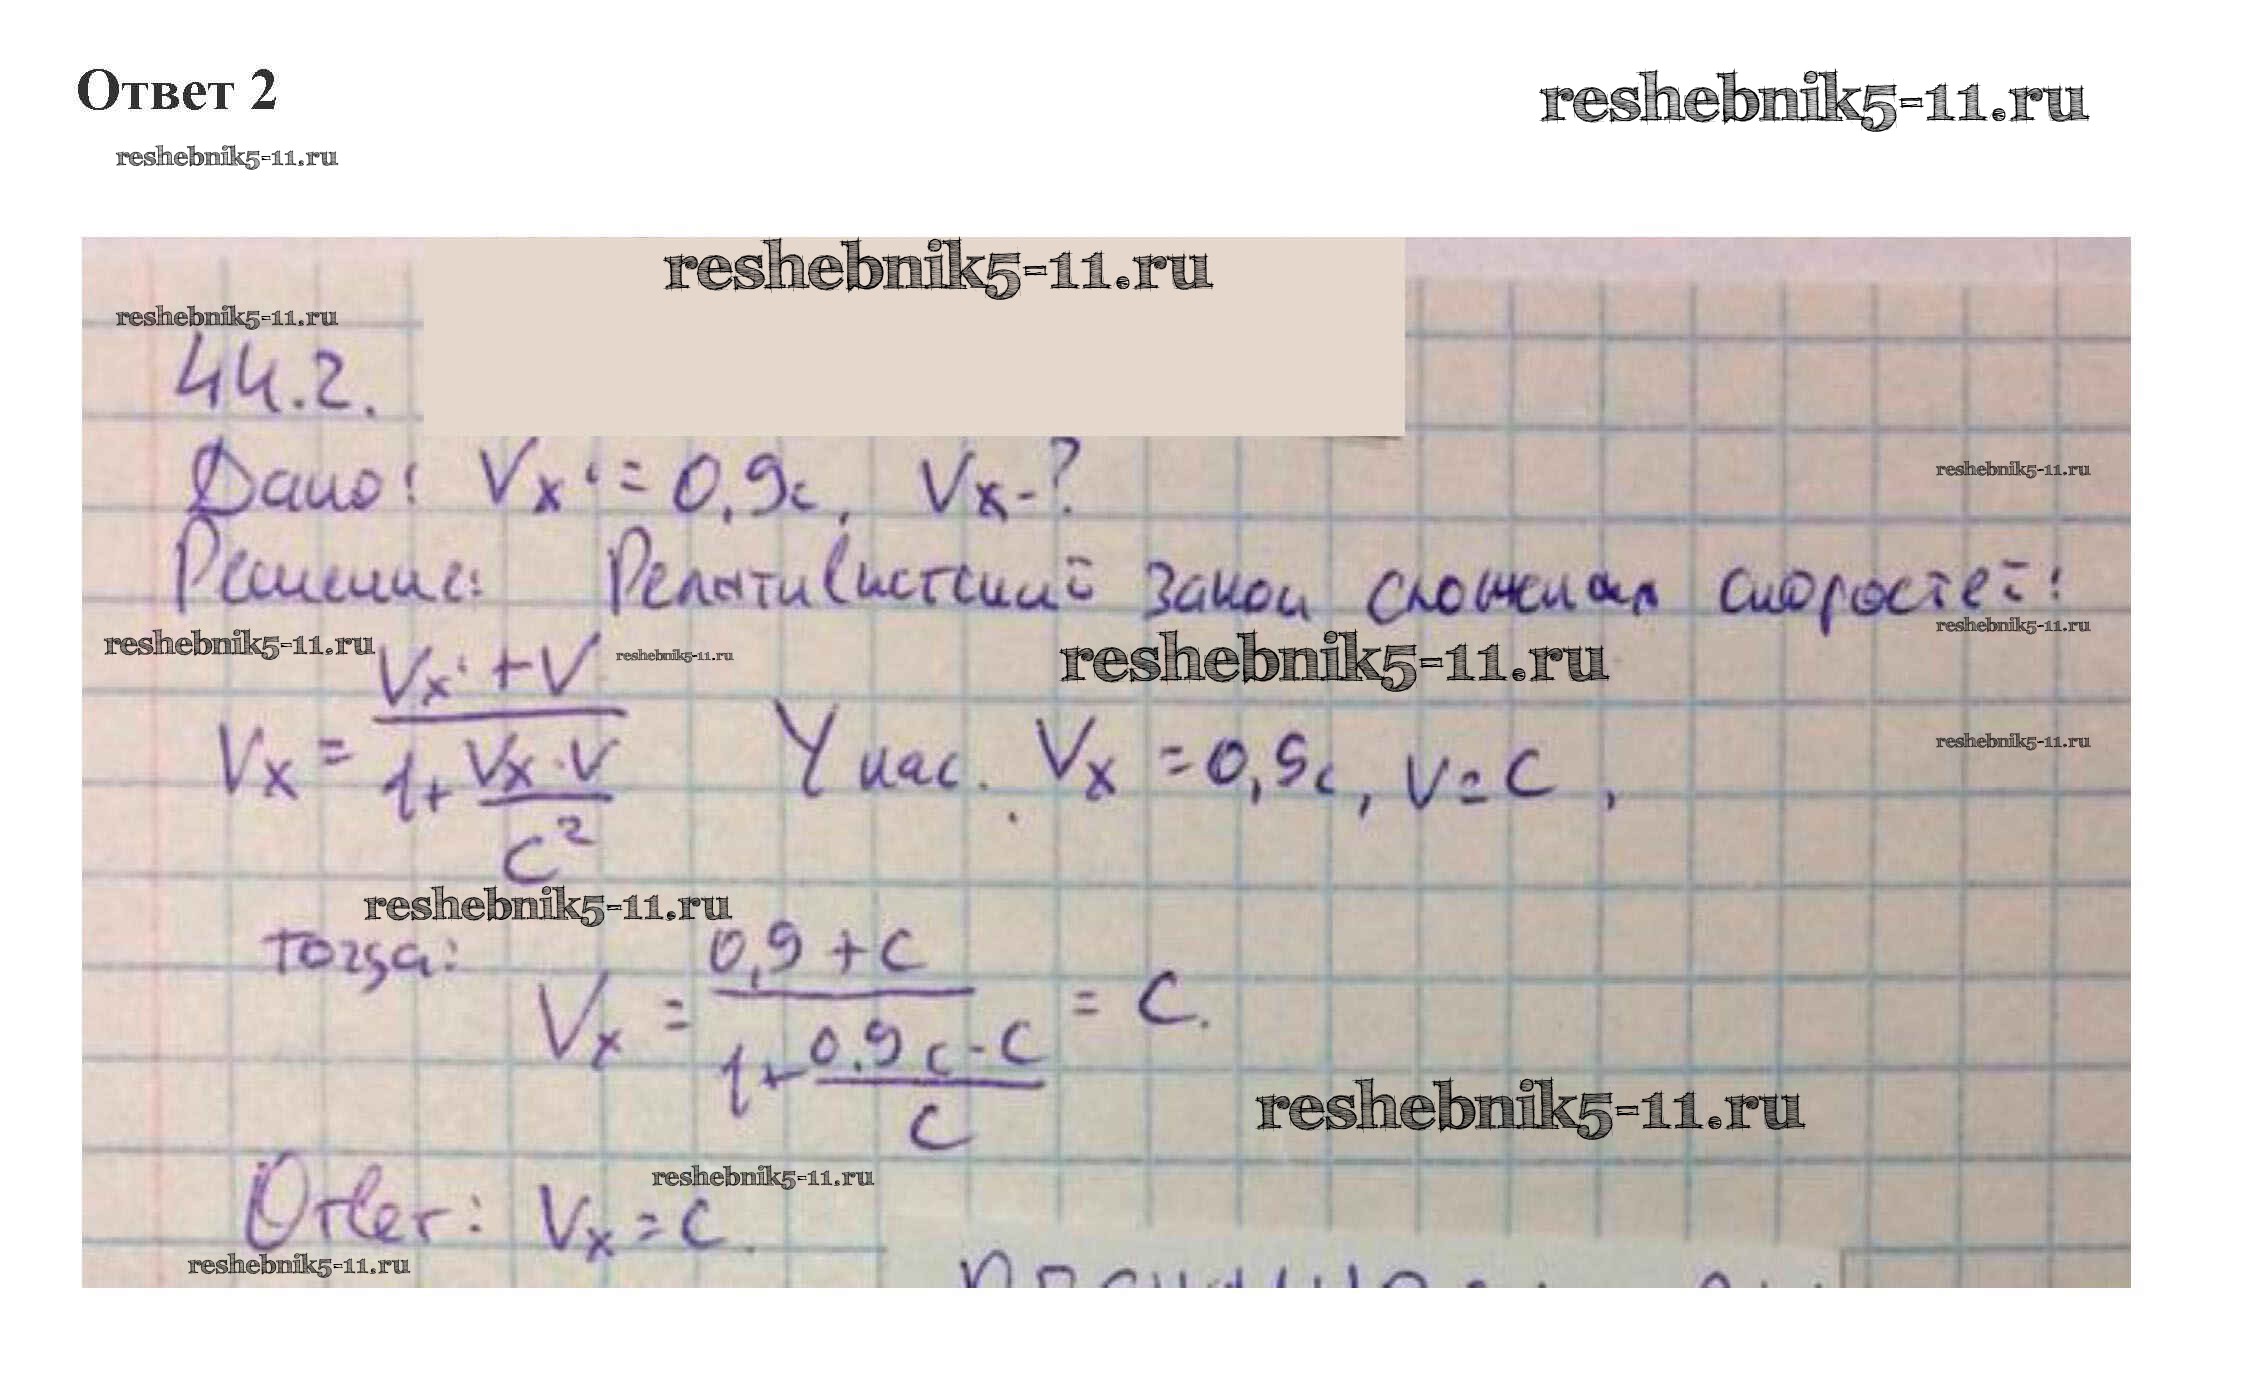 Ответ 2
reshebnik5-11.ru
reshebnik5-11.ru
reshebnik5-11.ru
reshebnik5-11.ru
44.2.
Дано: Vx' = 0,9c, Vx-?
reshebnik5-11.ru
Решение: Релятивистский закон сложения скоростей:
reshebnik5-11.ru
reshebnik5-11.ru
reshebnik5-11.ru
reshebnik5-11.ru
Vx = (Vx' + V) / (1 + (Vx·V) / c²) У нас. Vx = 0,9c, V = c,
reshebnik5-11.ru
reshebnik5-11.ru
тогда: Vx = (0,9 + c) / (1 + (0.9c·c) / c) = c.
reshebnik5-11.ru
reshebnik5-11.ru
Ответ: Vx = c.
reshebnik5-11.ru